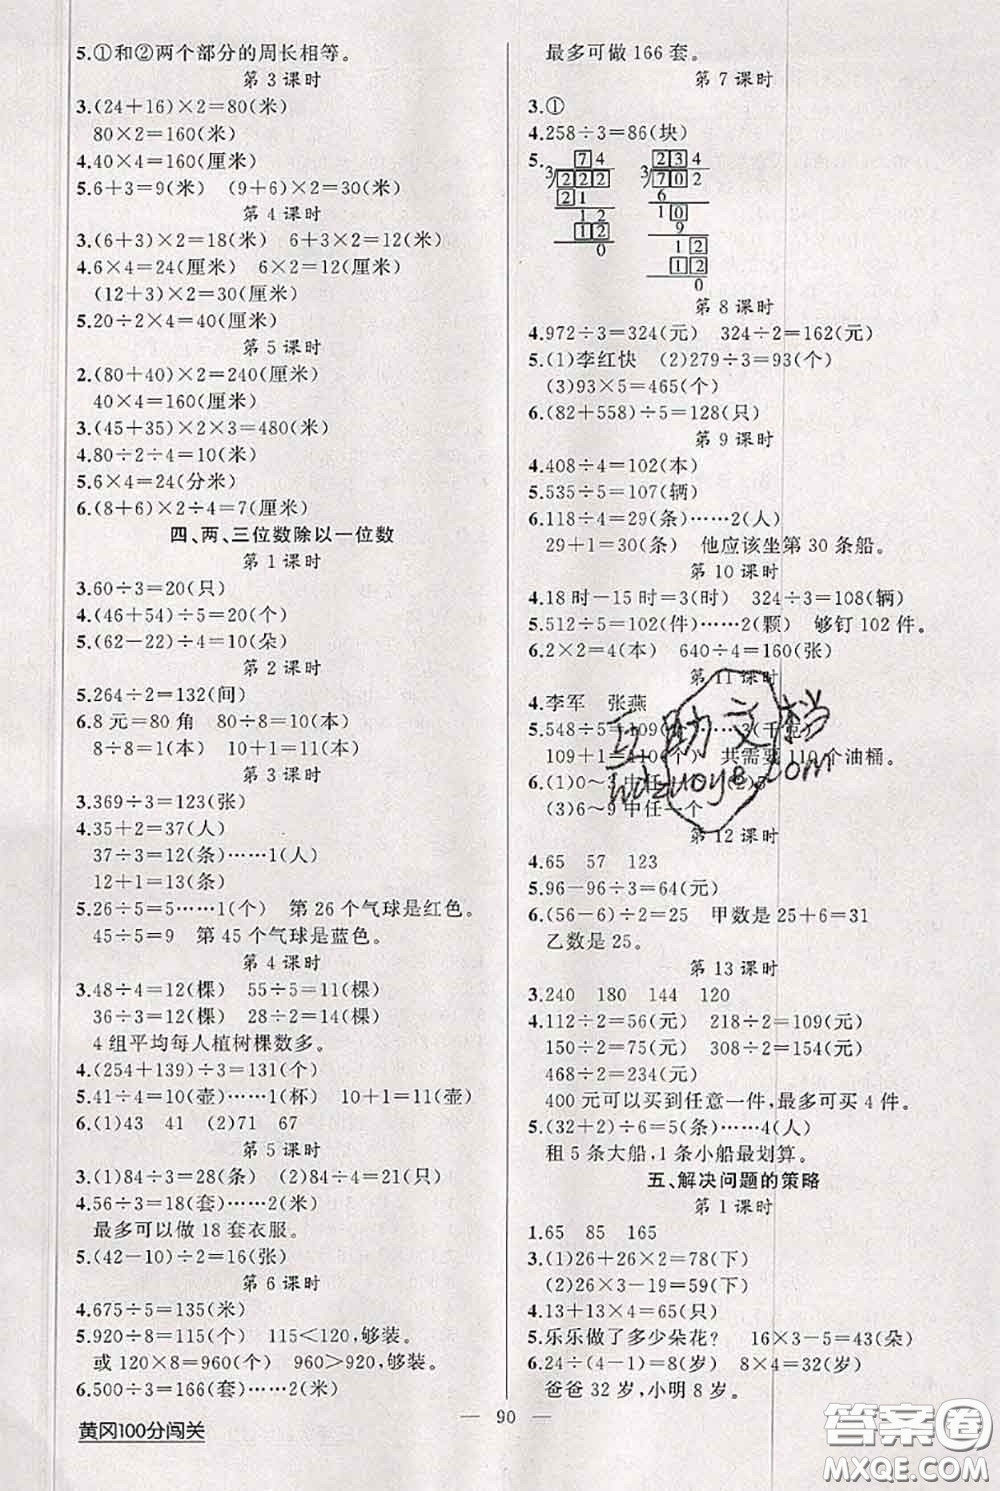 5.①和②两个部分的周长相等。
第 3 课时
3.(24+16)×2=80(米)
80×2=160(米)
4.40×4=160(厘米)
5.6+3=9(米) (9+6)×2=30(米)
第 4 课时
3.(6+3)×2=18(米) 6+3×2=12(米)
4.6×4=24(厘米) 6×2=12(厘米)
(12+3)×2=30(厘米)
5.20÷2×4=40(厘米)
第 5 课时
2.(80+40)×2=240(厘米)
40×4=160(厘米)
3.(45+35)×2×3=480(米)
4.80÷2÷4=10(米)
5.6×4=24(分米)
6.(8+6)×2÷4=7(厘米)
四、两、三位数除以一位数
第 1 课时
3.60÷3=20(只)
4.(46+54)÷5=20(个)
5.(62-22)÷4=10(朵)
第 2 课时
5.264÷2=132(间)
6.8 元=80 角 80÷8=10(本)
8÷8=1(本) 10+1=11(本)
第 3 课时
3.369÷3=123(张)
4.35+2=37(人)
37÷3=12(条)……1(人)
12+1=13(条)
5.26÷5=5……1(个) 第 26 个气球是红色。
45÷5=9 第 45 个气球是蓝色。
第 4 课时
3.48÷4=12(棵) 55÷5=11(棵)
36÷3=12(棵) 28÷2=14(棵)
4 组平均每人植树棵数多。
4.(254+139)÷3=131(个)
5.41÷4=10(壶)……1(杯) 10+1=11(壶)
6.(1)43 41 (2)71 67
第 5 课时
3.(1)84÷3=28(条) (2)84÷4=21(只)
4.56÷3=18(套)……2(米)
最多可以做 18 套衣服。
5.(42-10)÷2=16(张)
第 6 课时
4.675÷5=135(米)
5.920÷8=115(个) 115<120,够装。
或 120×8=960(个) 960>920,够装。
6.500÷3=166(套)……2(米)
黄冈100分闯关
最多可做 166 套。
第 7 课时
3.①
4.258÷3=86(块)
5.
74 234
3 222 3 702
21 6
12 10
12 9
0 12
12
0
第 8 课时
4.972÷3=324(元) 324÷2=162(元)
5.(1)李红快 (2)279÷3=93(个)
(3)93×5=465(个)
6.(82+558)÷5=128(只)
第 9 课时
4.408÷4=102(本)
5.535÷5=107(辆)
6.118÷4=29(条)……2(人)
29+1=30(条) 他应该坐第 30 条船。
第 10 课时
4.18 时-15 时=3(时) 324÷3=108(辆)
5.512÷5=102(件)……2(颗) 够钉 102 件。
6.2×2=4(本) 640÷4=160(张)
第 11 课时
4.李军 张燕
5.548÷5=109(个)……3(千克)
109+1=110(个) 共需要 110 个油桶。
6.(1)0～3 中任一个
(3)6～9 中任一个
第 12 课时
4.65 57 123
5.96-96÷3=64(元)
6.(56-6)÷2=25 甲数是 25+6=31
乙数是 25。
第 13 课时
3.240 180 144 120
4.112÷2=56(元) 218÷2=109(元)
150÷2=75(元) 308÷2=154(元)
468÷2=234(元)
400 元可以买到任意一件,最多可买 4 件。
5.(32+2)÷6=5(条)……4(人)
租 5 条大船,1 条小船最划算。
五、解决问题的策略
第 1 课时
1.65 85 165
3.(1)26+26×2=78(下)
(2)26×3-19=59(下)
4.13+13×4=65(只)
5.乐乐做了多少朵花? 16×3-5=43(朵)
6.24÷(4-1)=8(岁) 8×4=32(岁)
爸爸 32 岁,小明 8 岁。
— 90 —
互助文档
hdzuoye.com
答案圈
MXQE.COM